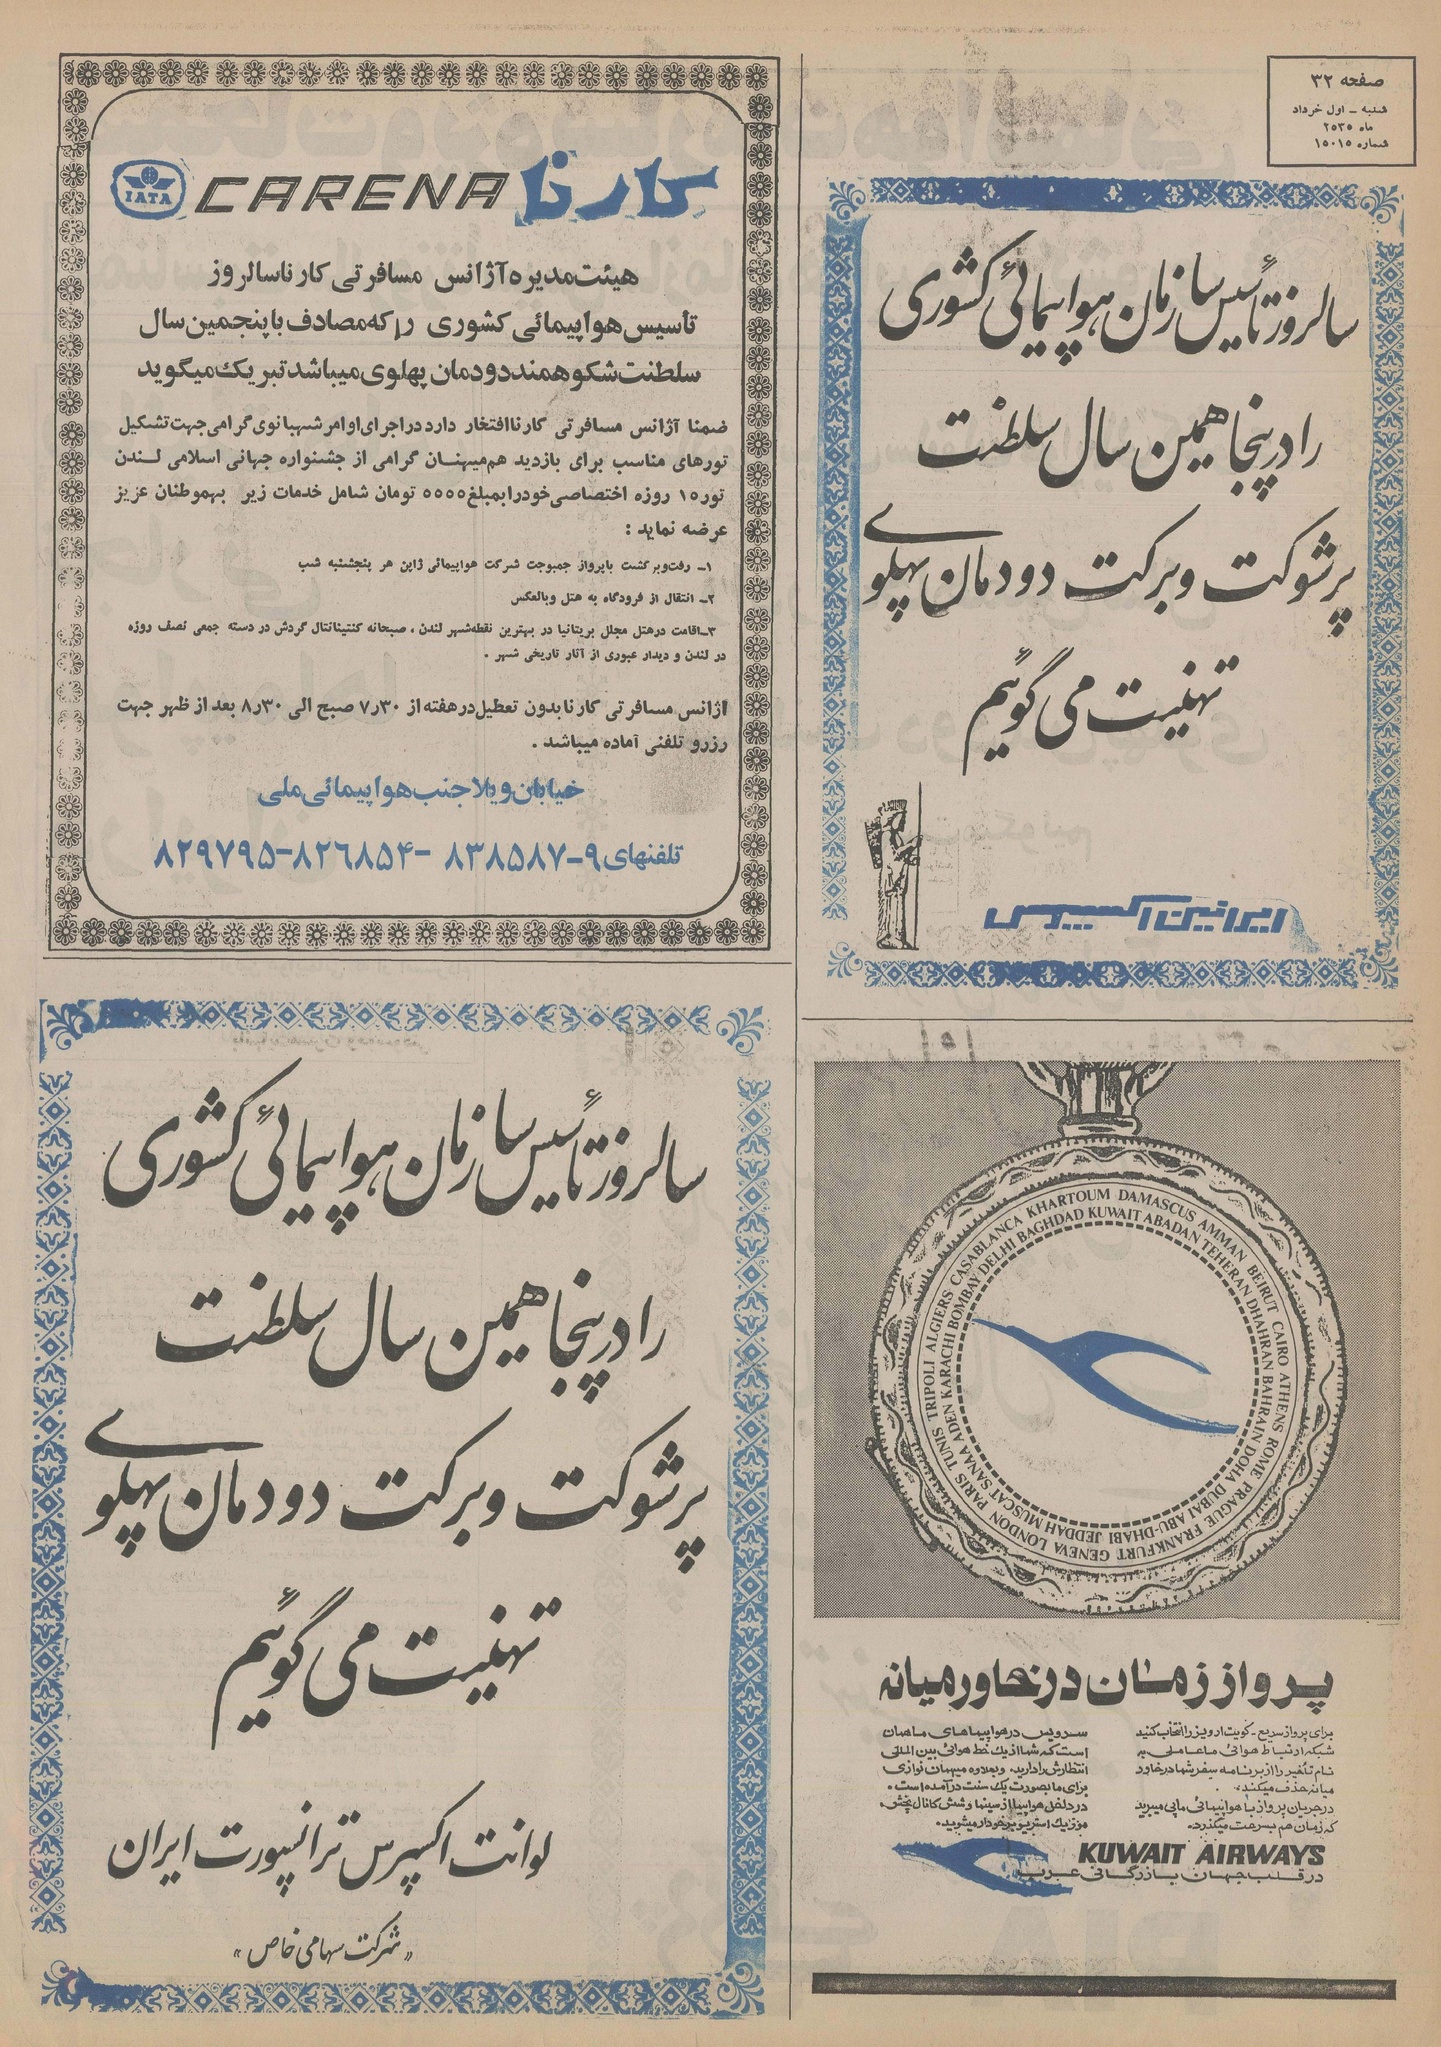 صفحه ۳۲
شنبه - اول خرداد
ماه ۲۵۳۵
شماره ۱۵۰۱۵
سالروز تأسیس سازمان هواپیمائی کشوری
را در پنجاهمین سال سلطنت
پر شوکت و برکت دودمان پهلوی
تهنیت می گوئیم
ایرانین اکسپرس
IATA CARENA کارنا
هیئت مدیره آژانس مسافرتی کارنا سالروز
تأسیس هواپیمائی کشوری را که مصادف با پنجمین سال
سلطنت شکوهمند دودمان پهلوی میباشد تبریک میگوید
ضمنا آژانس مسافرتی کارنا افتخار دارد در اجرای اوامر شهبانوی گرامی جهت تشکیل
تورهای مناسب برای بازدید هم میهنان گرامی از جشنواره جهانی اسلامی لندن
تور ۱۵ روزه اختصاصی خود را بمبلغ ۵۵۵۵ تومان شامل خدمات زیر بهموطنان عزیز
عرضه نماید :
۱- رفت و برگشت با پرواز جمبوجت شرکت هواپیمائی ژاپن هر پنجشنبه شب
۲- انتقال از فرودگاه به هتل و بالعکس
۳- اقامت در هتل مجلل بریتانیا در بهترین نقطه شهر لندن ، صبحانه کنتیننتال گردش در دسته جمعی نصف روزه
در لندن و دیدار عبوری از آثار تاریخی شهر .
آژانس مسافرتی کارنا بدون تعطیل در هفته از ۷٫۳۰ صبح الی ۸٫۳۰ بعد از ظهر جهت
رزرو تلفنی آماده میباشد .
خیابان ویلا جنب هواپیمائی ملی
تلفنهای ۹-۸۳۸۵۸۷ -۸۲۶۸۵۴-۸۲۹۷۹۵
سالروز تأسیس سازمان هواپیمائی کشوری
را در پنجاهمین سال سلطنت
پر شوکت و برکت دودمان پهلوی
تهنیت می گوئیم
لوانت اکسپرس ترانسپورت ایران
«شرکت سهامی خاص»
LONDON PARIS TUNIS TRIPOLI ALGIERS CASABLANCA KHARTOUM DAMASCUS AMMAN BEIRUT CAIRO ATHENS ROME PRAGUE FRANKFURT GENEVA
JEDDAH MUSCAT SANAA ADEN KARACHI BOMBAY DELHI BAGHDAD KUWAIT ABADAN TEHERAN DHAHRAN BAHRAIN DOHA DUBAI ABU-DHABI
پرواز زمان در خاورمیانه
برای پرواز سریع - کویت ارویز را انتخاب کنید
شبکه ارتباط هوائی ما عاملی به
نام تأخیر را از برنامه سفر شما در خاور
میانه حذف میکند.
در جریان پرواز با هواپیمائی ما پی میبرید
که زمان هم بسرعت میگذرد.
سرویس در هواپیماهای ما همان
است که شما از یک خط هوائی بین المللی
انتظارش را دارید. و بعلاوه میهمان نوازی
برای ما بصورت یک سنت درآمده است.
در داخل هواپیما از سینما و شش کانال پخش
موزیک استریو برخوردار میشوید.
KUWAIT AIRWAYS
در قلب جهان بازرگانی عرب